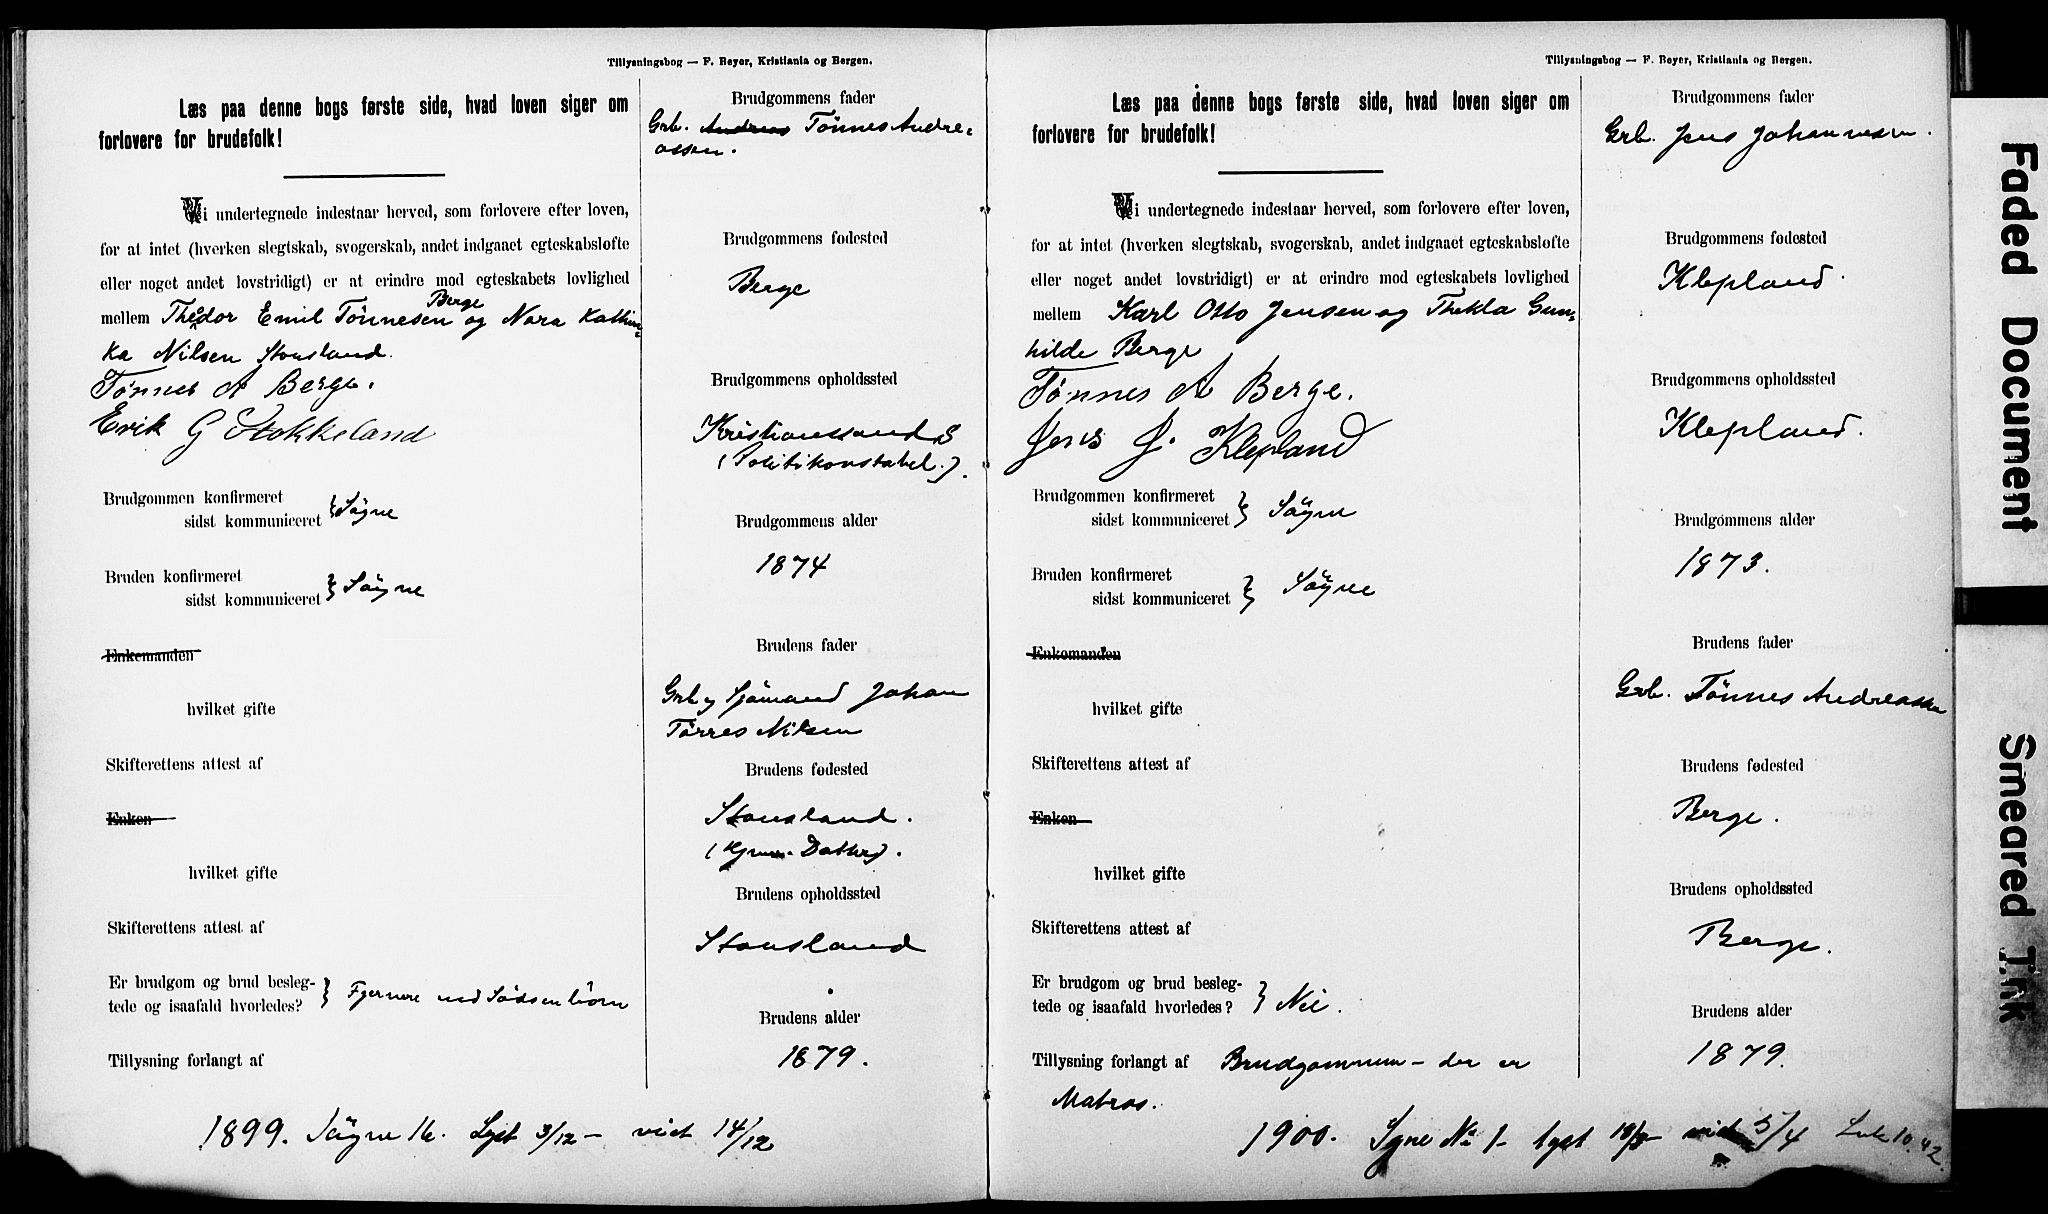 Tillysningsbog — F. Beyer, Kristiania og Bergen.
Læs paa denne bogs første side, hvad loven siger om
forlovere for brudefolk!
Vi undertegnede indestaar herved, som forlovere efter loven,
for at intet (hverken slegtskab, svogerskab, andet indgaaet egteskabsløfte
eller noget andet lovstridigt) er at erindre mod egteskabets lovlighed
mellem Theodor Emil Tönnesen Berge og Nora Kathin-
ka Nilsen Stousland.
Tønnes A Berge.
Erik G Stokkeland
Brudgommen konfirmeret
sidst kommuniceret } Sögne
Bruden konfirmeret
sidst kommuniceret } Sögne
Enkemanden
hvilket gifte
Skifterettens attest af
Enken
hvilket gifte
Skifterettens attest af
Er brudgom og brud besleg-
tede og isaafald hvorledes? } Fjernere end Södskenbörn
Tillysning forlangt af
Brudgommens fader
Grb. Andreas Tönnes Andre-
assen.
Brudgommens fødested
Berge
Brudgommens opholdssted
Kristianssand S
(Politikonstabel.)
Brudgommens alder
1874
Brudens fader
Grb. og Sjömand Johan
Törres Nilsen
Brudens fødested
Stousland.
(Hjemme Datter).
Brudens opholdssted
Stousland
Brudens alder
1879.
1899. Sögne 16. Lyst 3/12 – viet 14/12
Tillysningsbog — F. Beyer, Kristiania og Bergen.
Læs paa denne bogs første side, hvad loven siger om
forlovere for brudefolk!
Vi undertegnede indestaar herved, som forlovere efter loven,
for at intet (hverken slegtskab, svogerskab, andet indgaaet egteskabsløfte
eller noget andet lovstridigt) er at erindre mod egteskabets lovlighed
mellem Karl Otto Jensen og Thekla Gun-
hilde Berge
Tønnes A Berge.
Jens J. Klepland
Brudgommen konfirmeret
sidst kommuniceret } Sögne
Bruden konfirmeret
sidst kommuniceret } Sögne
Enkemanden
hvilket gifte
Skifterettens attest af
Enken
hvilket gifte
Skifterettens attest af
Er brudgom og brud besleg-
tede og isaafald hvorledes? } Nei.
Tillysning forlangt af Brudgommen – der er
Matros.
Brudgommens fader
Grb. Jens Johannesen.
Brudgommens fødested
Klepland.
Brudgommens opholdssted
Klepland.
Brudgommens alder
1873.
Brudens fader
Grb. Tönnes Andreassen
Brudens fødested
Berge.
Brudens opholdssted
Berge.
Brudens alder
1879.
1900. Sgne No 1 – lyst 18/3 – viet 5/4 Luk 10.42.
Faded Document
Smeared Ink